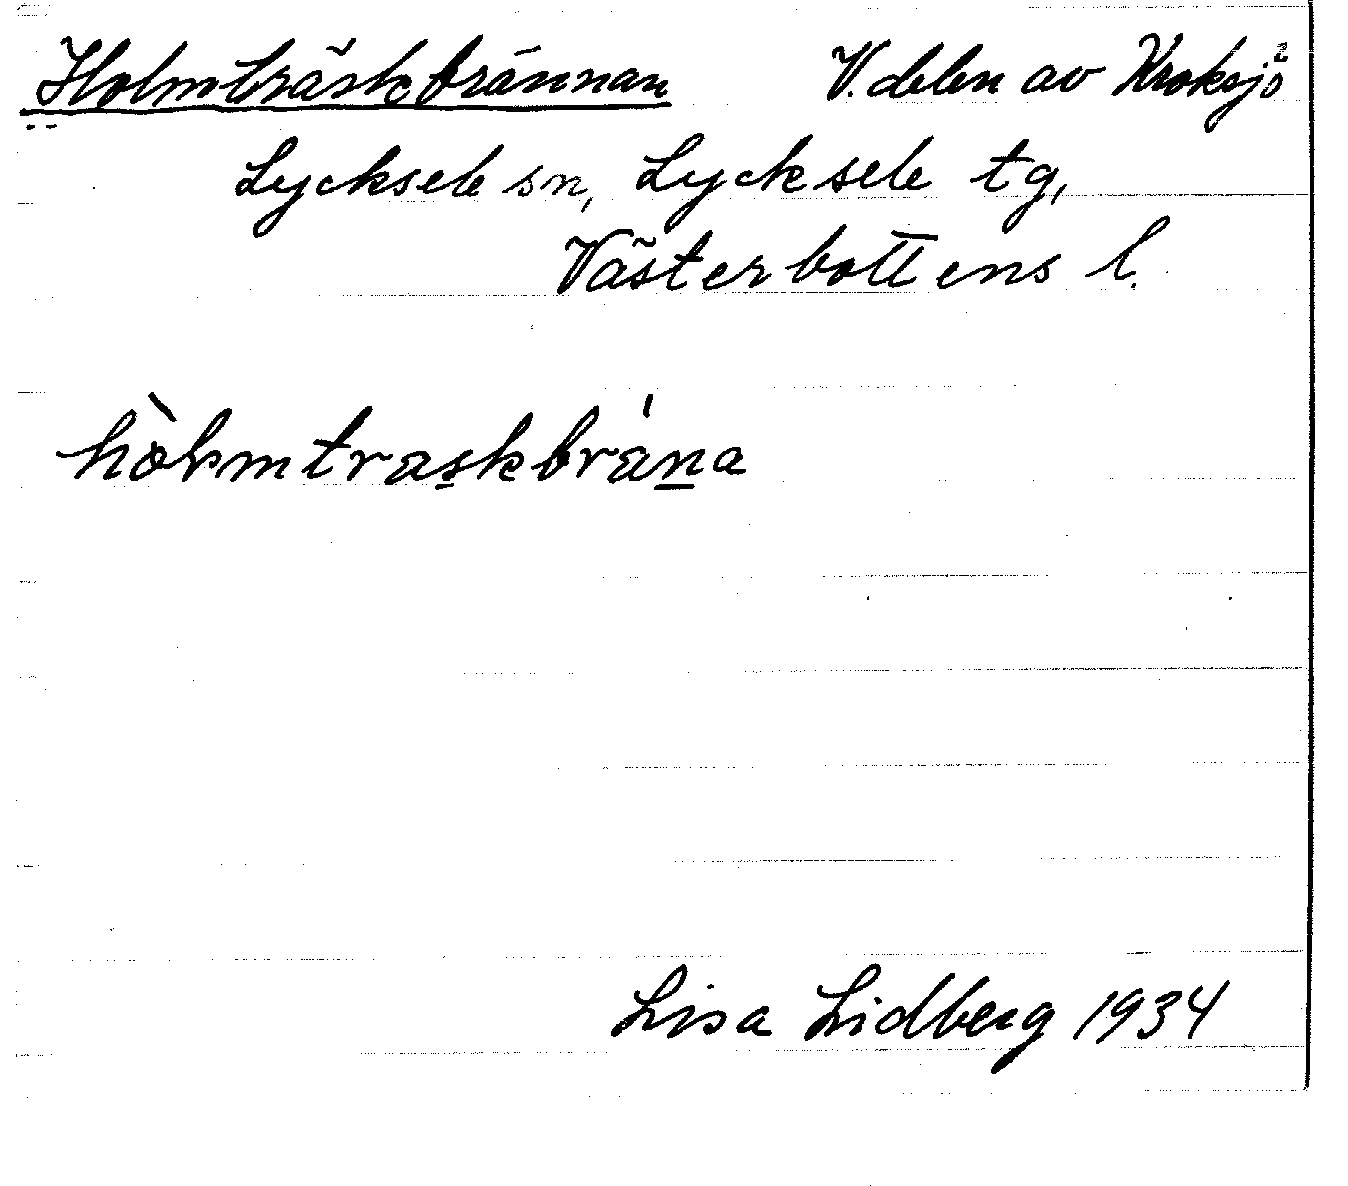 Holmträskbrännan V. delen av Kroksjö
Lycksele sn, Lycksele tg,
Västerbottens l.
hòlmtraskbrána
Lisa Lidberg 1934